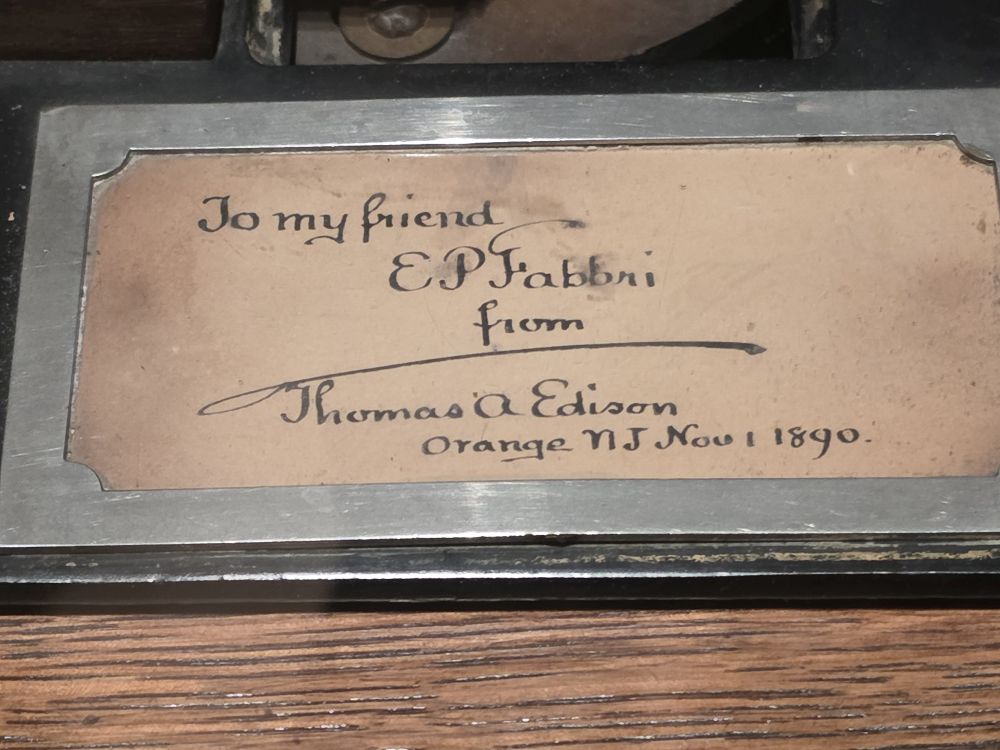 To my friend
E P Fabbri
from
Thomas A Edison
Orange NJ Nov 1 1890.